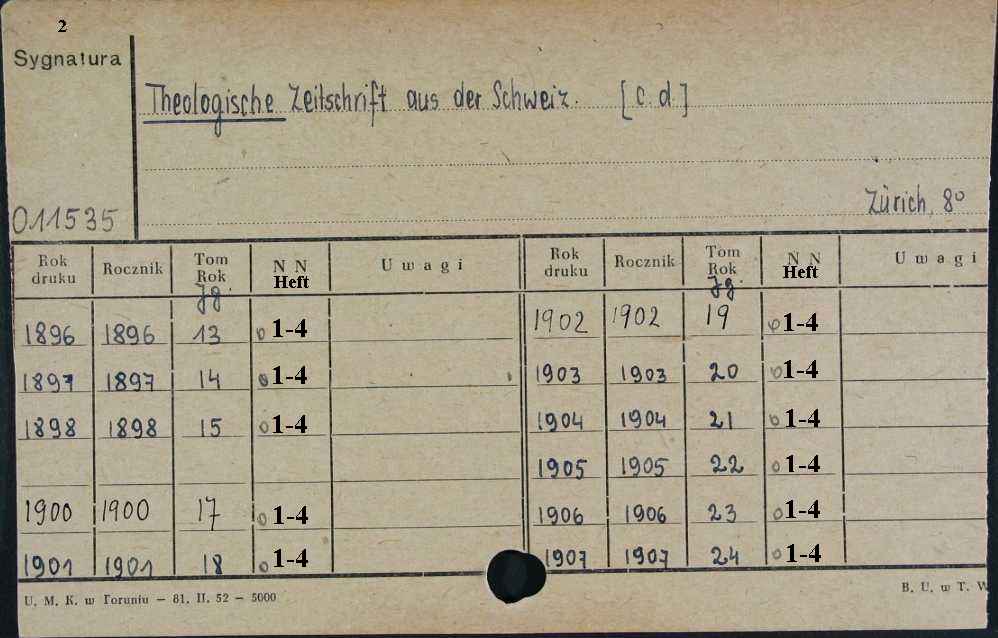 2
Sygnatura
Theologische Zeitschrift aus der Schweiz. [c. d.]
Zürich, 8º
011535
Rok druku Rocznik Tom Rok Jg N N Heft Uwagi
1896 1896 13 o 1-4
1897 1897 14 o 1-4
1898 1898 15 o 1-4
1900 1900 17 o 1-4
1901 1901 18 o 1-4
Rok druku Rocznik Tom Rok Jg. N N Heft Uwagi
1902 1902 19 o 1-4
1903 1903 20 o 1-4
1904 1904 21 o 1-4
1905 1905 22 o 1-4
1906 1906 23 o 1-4
1907 1907 24 o 1-4
U. M. K. w Toruniu — 81. II. 52 — 5000
B. U. w T. W